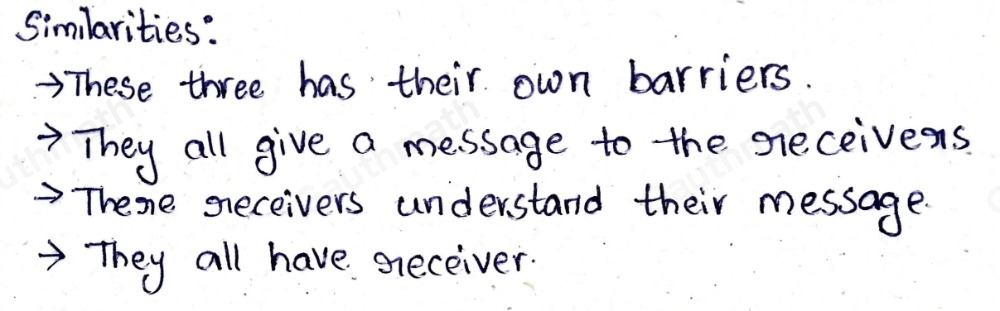 Similarities:
→These three has their own barriers.
→They all give a message to the receivers.
→There receivers understand their message.
→ They all have receiver.